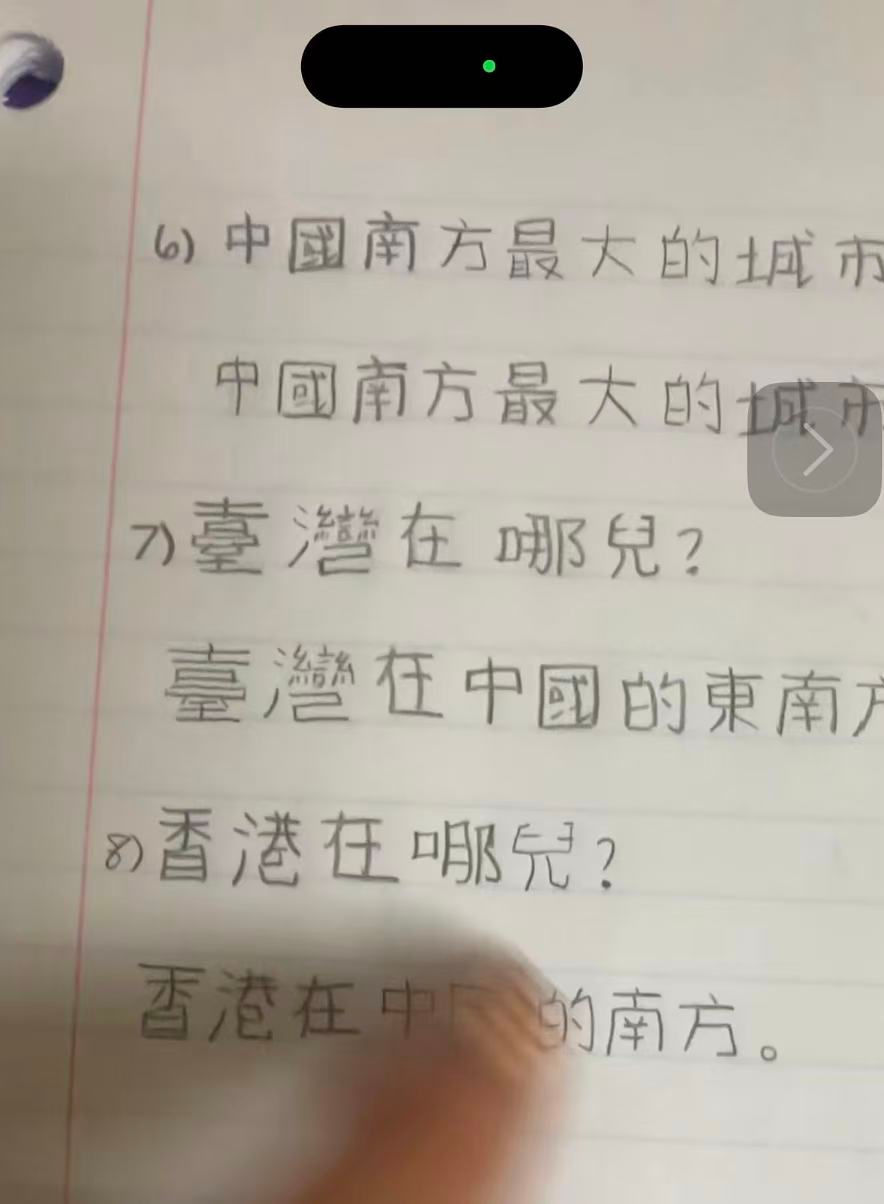 6) 中國南方最大的城市
中國南方最大的城市
7) 臺灣在哪兒?
臺灣在中國的東南方
8) 香港在哪兒?
香港在中 的南方。